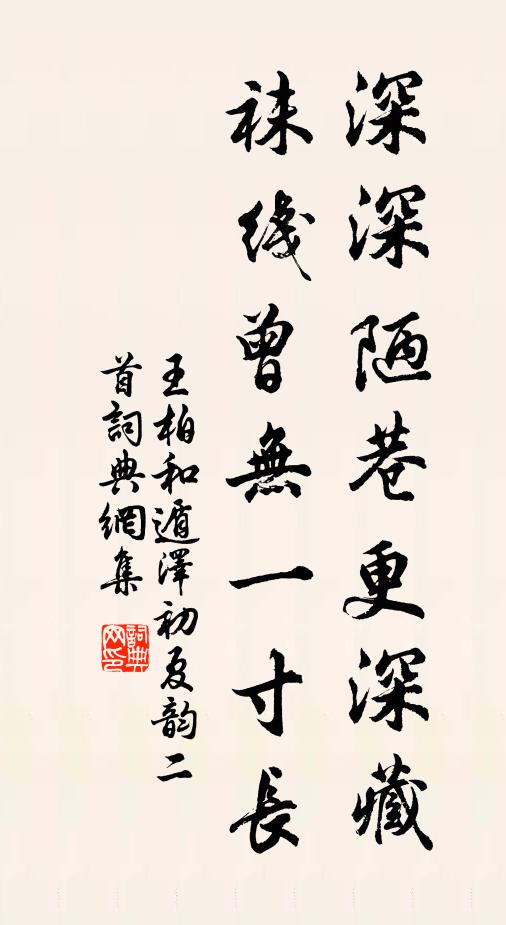 深深陋巷更深藏
袜线曾無一寸長
王柏和遁澤初夏韵二
首詞典網集
詞典网印